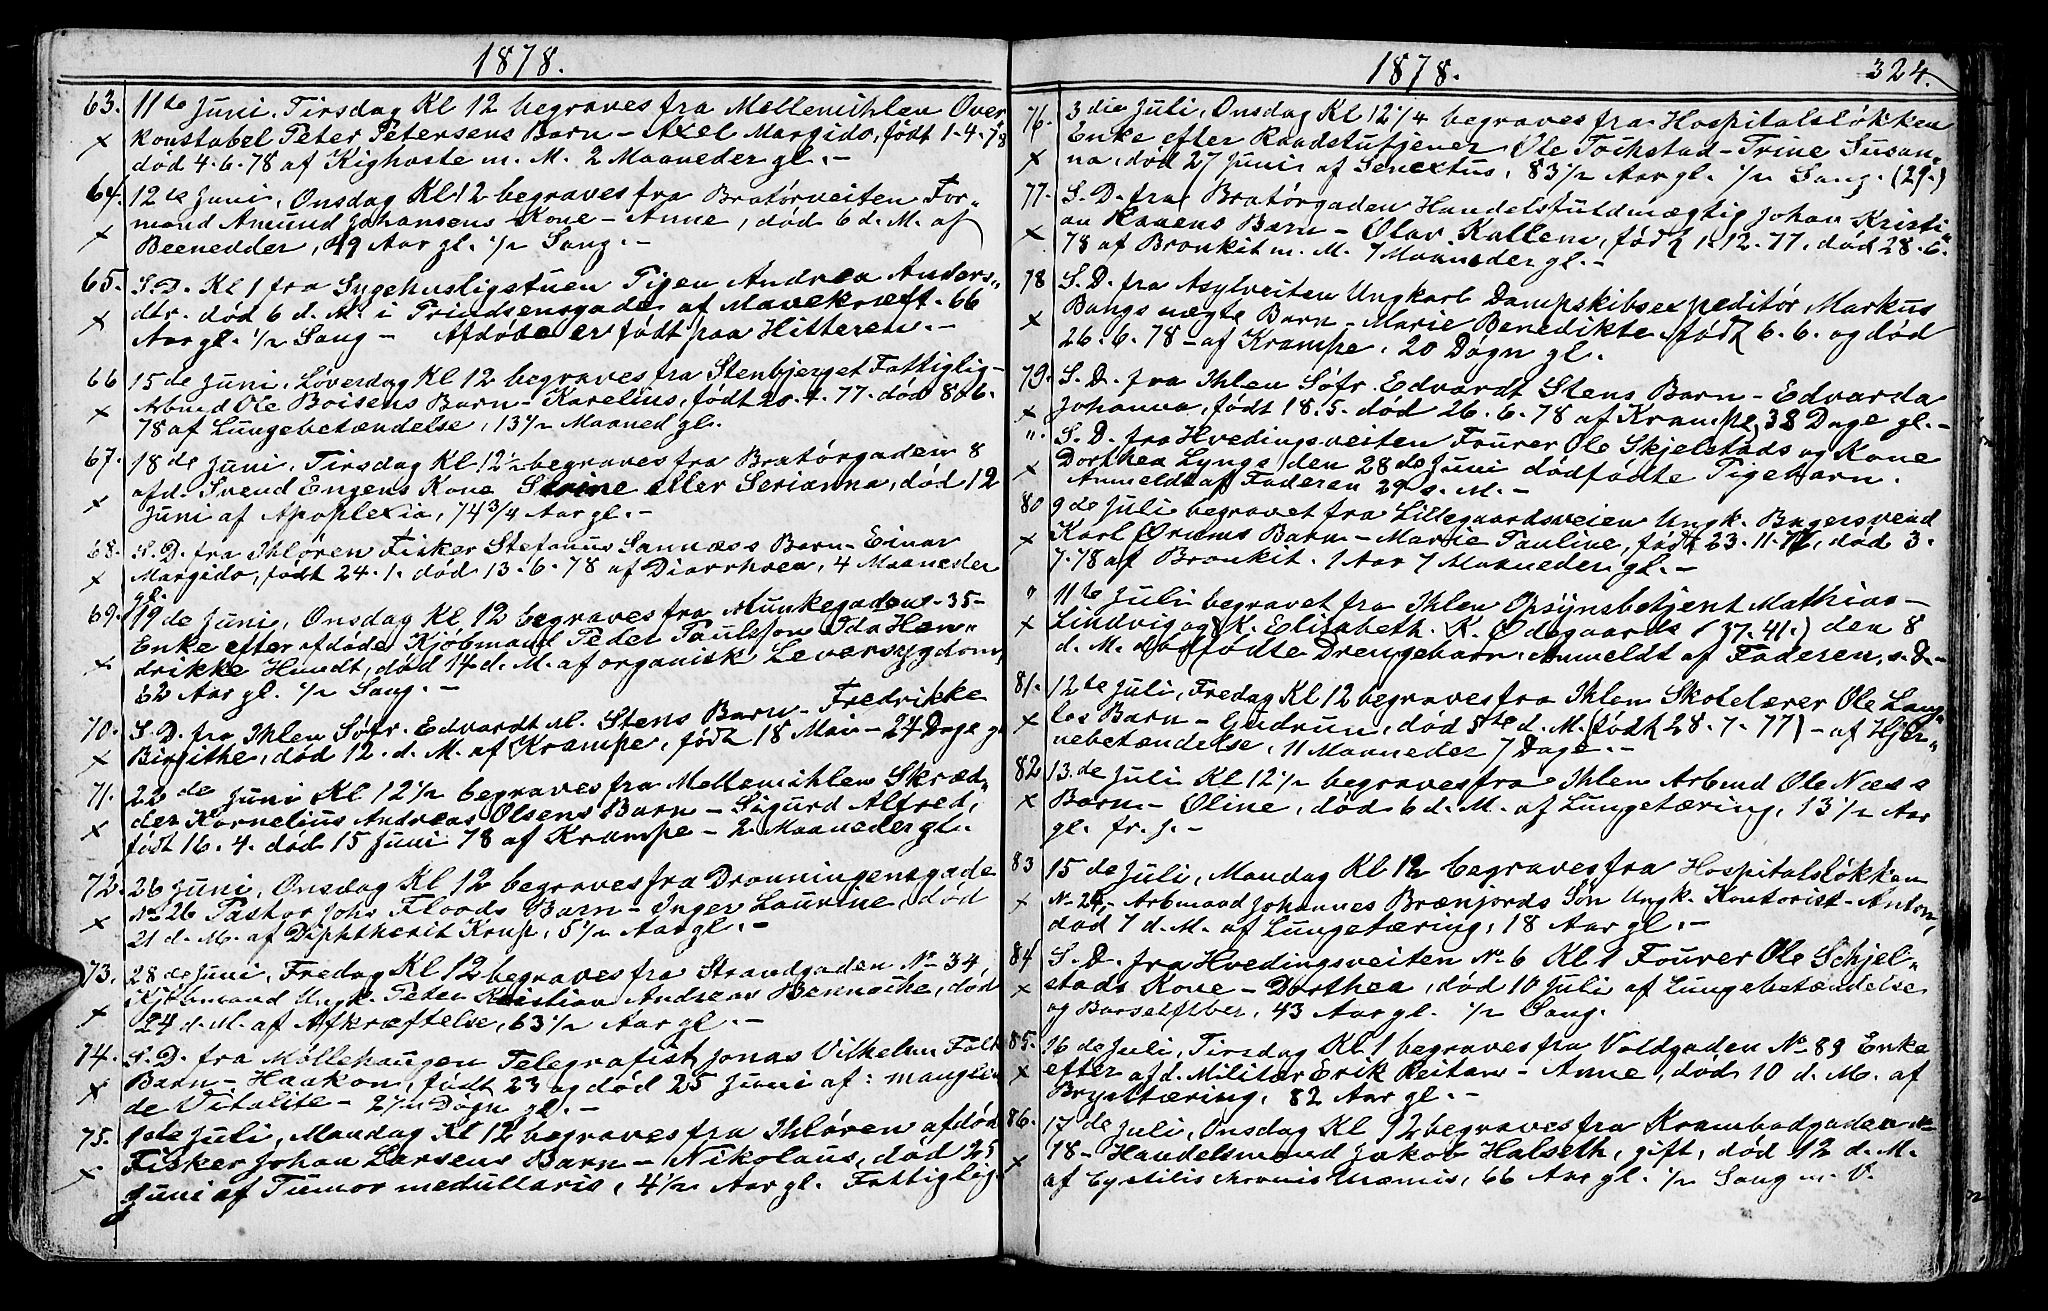 1878.
63. 11te Juni. Tirsdag Kl 12 begraves fra Mellemihlen Over
konstabel Peter Petersens Barn – Axel Margido, født 1-4-78
død 4-6-78 af Kighoste m. M. 2 Maaneder gl. –
64. 12te Juni, Onsdag Kl 12 begraves fra Bratørveiten For„
mand Amund Johansens Kone – Anne, død 6 d. M. af
Beenedder, 49 Aar gl. ½ Sang. –
65. S. D. Kl 1 fra Sygehusligstuen Pigen Andrea Anders„
dtr. død 6 d. M. i Prindsensgade af Mavekræft. 66
Aar gl. ½ Sang – Afdøde er født paa Hitteren. –
66 15de Juni, Løverdag Kl 12 begraves fra Stenbjerget Fattiglig –
Arbmd Ole Boisens Barn – Karelius, født 20.4.77. død 8.6.
78 af Lungebetændelse, 13½ Maaned gl.
67. 18de Juni, Tirsdag Kl 12½ begraves fra Bratørgaden 8
afd. Svend Engens Kone Serine eller Serianna, død 12
Juni af Apoplexia, 74¾ Aar gl. –
68. S. D. fra Ihløren Fisker Stefanus Sannæss Barn – Einar
Margido, født 24.1. død 13.6.78 af Diarrhoea, 4 Maaneder
gl.
69. 19de Juni, Onsdag Kl 12 begraves fra Munkegaden – 35 –
Enke efter afdøde Kjøbmand Peder Paulsson Ida Hen„
drikke Hundt, død 14 d. M. af organisk Leversygdom,
62 Aar gl. ½ Sang. –
70. S. D. fra Ihlen Søfr. Edvardt M. Stens Barn – Fredrikke
Birgithe, død 12. d. M. af Krampe, født 18 Mai – 24 Dage gl
71. 22de Juni Kl 12½ begraves fra Mellemihlen Skræd„
der Kornelius Andreas Olsens Barn – Sigurd Alfred,
født 16.4. død 15 Juni 78 af Krampe – 2 Maaneder gl.
72. 26 Juni, Onsdag Kl 12 begraves fra Dronningensgade
No 26 Pastor Johs Floods Barn – Inger Laurine, død
21 d. M. af Diphtherit Krup, 5½ Aar gl. –
73. 28de Juni, Fredag Kl 12 begraves fra Strandgaden No 34
Kjøbmand Ungk. Peter Kristian Andreas Benneche, død
24 d. M. af Afkræftelse, 63½ Aar gl. –
74. S. D. fra Møllehaugen Telegrafist Jonas Vilhelm Falk
Barn – Haakon, født 23 og død 25 Juni af: manglen
de Vitalite – 2½ Døgn gl. –
75. 1ste Juli, Mandag Kl 12 begraves fra Ihløren afdød
Fisker Johan Larsens Barn – Nikolaus, død 25
Juni af Tumor medullaris, 4½ Aar gl. Fattiglig.
1878. 324.
76. 3die Juli, Onsdag Kl 12¼ begraves fra Hospitalsløkken
Enke efter Raadstutjener Ole Tochstad – Trine Susan„
na, død 27 Juni af Senectus, 83½ Aar gl. ½ Sang. (29.)
77. S. D. fra Bratørgaden Handelsfuldmægtig Johan Kristi„
an Haaens Barn – Olav Kallem, født 1.12.77. død 28.6.
78 af Bronkit m. M. 7 Maaneder gl. –
78 S. D. fra Asylveiten Ungkarl Dampskibsexpeditør Markus
Bangs uægte Barn – Marie Benedikte født 6.6. og død
26.6.78 – af Krampe, 20 Døgn gl.
79. S. D. fra Ihlen Søfr. Edvardt Stens Barn – Edvarda
Johanna, født 18.5. død 26.6.78 af Krampe, 38 Dage gl. –
„. S. D. fra Hvedingsveiten Fourer Ole Skjelstads og Kone
Dorthea Lyngs den 28de Juni dødfødte Pigebarn.
Anmeldt af Faderen 29 s. M. –
80 9de Juli begravet fra Lillegaardsveien Ungk. Bagersvend
Karl Ørums Barn – Marie Pauline, født 23.11.77, død 3.
7.78 af Bronkit. 1 Aar 7 Maaneder gl. –
„ 11te Juli begravet fra Ihlen Opsynsbetjent Mathias
Lindvig og K. Elisabeth K. Ødegaards (37.41.) den 8
d. M. dødfødte Drengebarn. Anmeldt af Faderen, s. D. –
81. 12te Juli, Fredag Kl 12 begraves fra Ihlen Skolelærer Ole Lang„
los Barn – Gudrun, død 5te d. M. (født 28.7.77) – af Hjer„
nebetændelse, 11 Maaneder 7 Dage. –
82 13.de Juli Kl 12½ begraves fra Ihlen Arbmd Ole Næss
Barn – Oline, død 6 d. M. af Lungetæring, 13½ Aar
gl. fr. j. –
83 15de Juli, Mandag Kl 12 begraves fra Hospitalsløkken
No 24, – Arbmand Johannes Brænjords Søn Ungk. Kontorist – Anton,
død 7 d. M. af Lungetæring, 18 Aar gl. –
84 S. D. fra Hvedingsveiten No 6 Kl 1 Fourer Ole Schjel„
stads Kone – Dorthea, død 10 Juli af Lungebetændelse
og Barselfeber, 43 Aar gl. ½ Sang.
85. 16de Juli, Tirsdag Kl 1 begraves fra Voldgaden No 89 Enke
efter afd. Militær Erik Reitan – Anne, død 10 d. M. af
Brysttæring, 82 Aar gl. –
86. 17de Juli, Onsdag Kl 12 begraves fra Krambodgaden No
18 – Handelsmand Jakob Halseth, gift, død 12 d. M.
af Cystitis chronis Uræmis, 66 Aar gl. ½ Sang m. V.